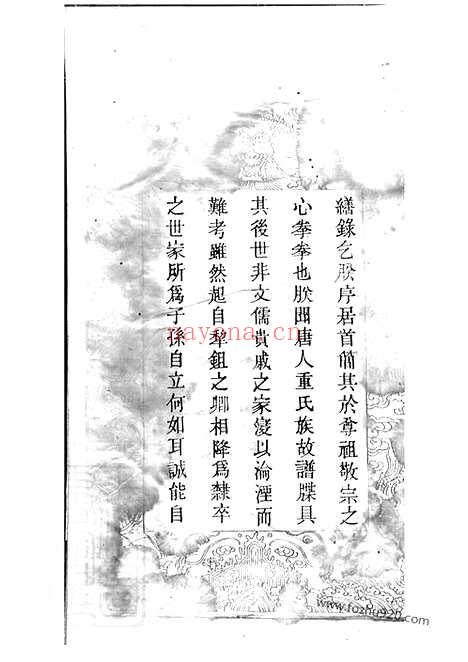 繕錄乞朕序居首簡其於尊祖敬宗之
心拳拳也朕唐人重氏族故譜牒具
其後世非文儒貴戚之家寖以淪湮而
難考雖然起自犂鉏之卿相降爲隸卒
之世家所爲子孫自立何如耳誠能自
nayona.cn
www.fozhu920.com